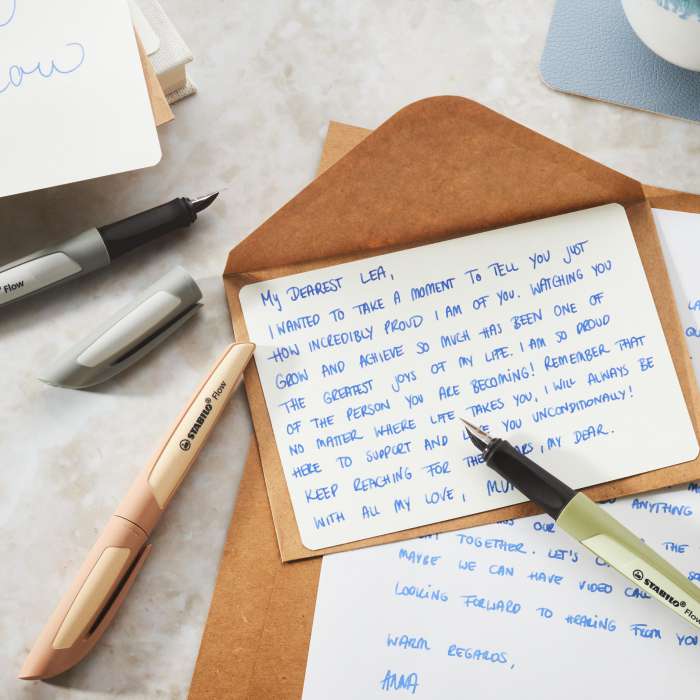 ow
STABILO® Flow
Flow
STABILO® Flow
My DEAREST LEA,
I WANTED TO TAKE A MOMENT TO TELL YOU JUST
HOW INCREDIBLY PROUD I AM OF YOU. WATCHING YOU
GROW AND ACHIEVE SO MUCH HAS BEEN ONE OF
THE GREATEST JOYS OF MY LIFE. I AM SO PROUD
OF THE PERSON YOU ARE BECOMING! REMEMBER THAT
NO MATTER WHERE LIFE TAKES YOU, I WILL ALWAYS BE
HERE TO SUPPORT AND YOU UNCONDITIONALLY!
KEEP REACHING FOR THE ARS, MY DEAR.
WITH ALL MY LOVE, MU
ANYTHING
OUR
TOGETHER. LET'S THE SO
MAYBE WE CAN HAVE VIDEO CAL
LOOKING FORWARD TO HEARING FROM YOU
WARM REGARDS,
ANNA